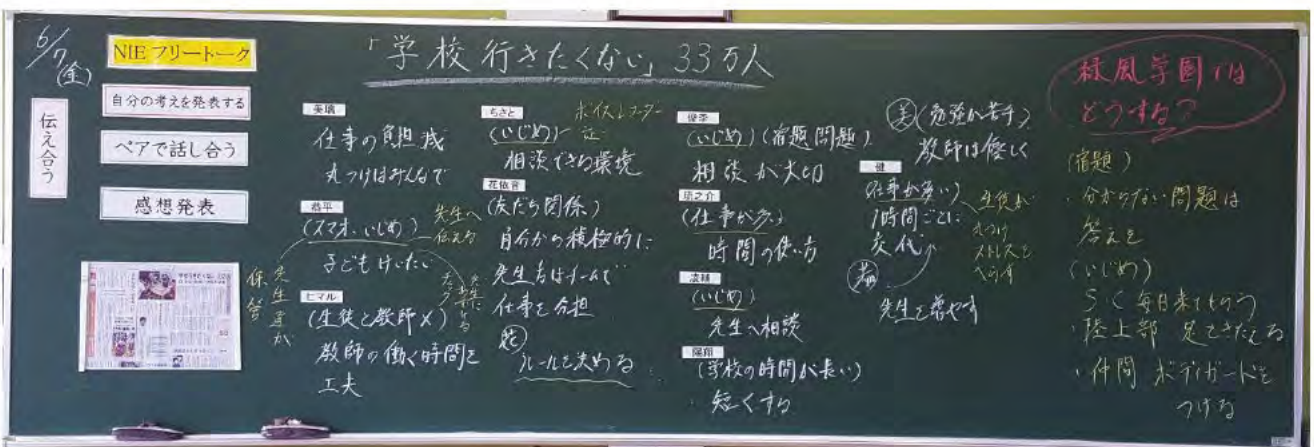 6/7(金)
NIE フリートーク
自分の考えを発表する
ペアで話し合う
感想発表
伝え合う
「学校行きたくない」33万人
英璃
仕事の負担減
丸つけはみんなで
恭平
(スマホ、いじめ)
先生へ
伝える
子どもけいたい
先生方が
保管
ヒマル
(生徒と教師×)
教師の働く時間を
工夫
ちさと
ボイスレコーダー
(いじめ)
証
相談できる環境
花依音
(友だち関係)
自分からの積極的に
先生方はチームで
仕事を分担
花
ルールを決める
優季
(いじめ)(宿題問題)
相談が大切
(仕事が多い)
時間の使い方
凌輔
(いじめ)
先生へ相談
陽翔
(学校の時間が長い)
短くする
英(勉強が苦手)
教師は優しく
健
(仕事が多い)
1時間ごとに
交代
生徒が
丸つけ
ストレスを
へらす
先生を増やす
緑風学園では
どうする?
(宿題)
・分からない問題は
答えを
(いじめ)
SC毎日来てもらう
・陸上部 足をきたえる
・仲間 ボディガードを
つける